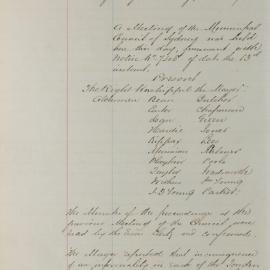 A Meeting of the Municipal
Council of Sydney was held
here this day, pursuant to the
Notice No. of date the 13th
instant.
Present
The Right Worshipful the Mayor
Aldermen Bean Butcher
Carter Chapman
Dean Green
Hardie Jones
Kippax Lees
Meriman
Playfair Poole
Taylor Wadsworth
Withers Wm Young
J. D. Young
The Minutes of the proceedings at the
previous Meeting of the Council were
read by the Town Clerk and confirmed.
The Mayor reported that in consequence
of an informality in each of the Tenders